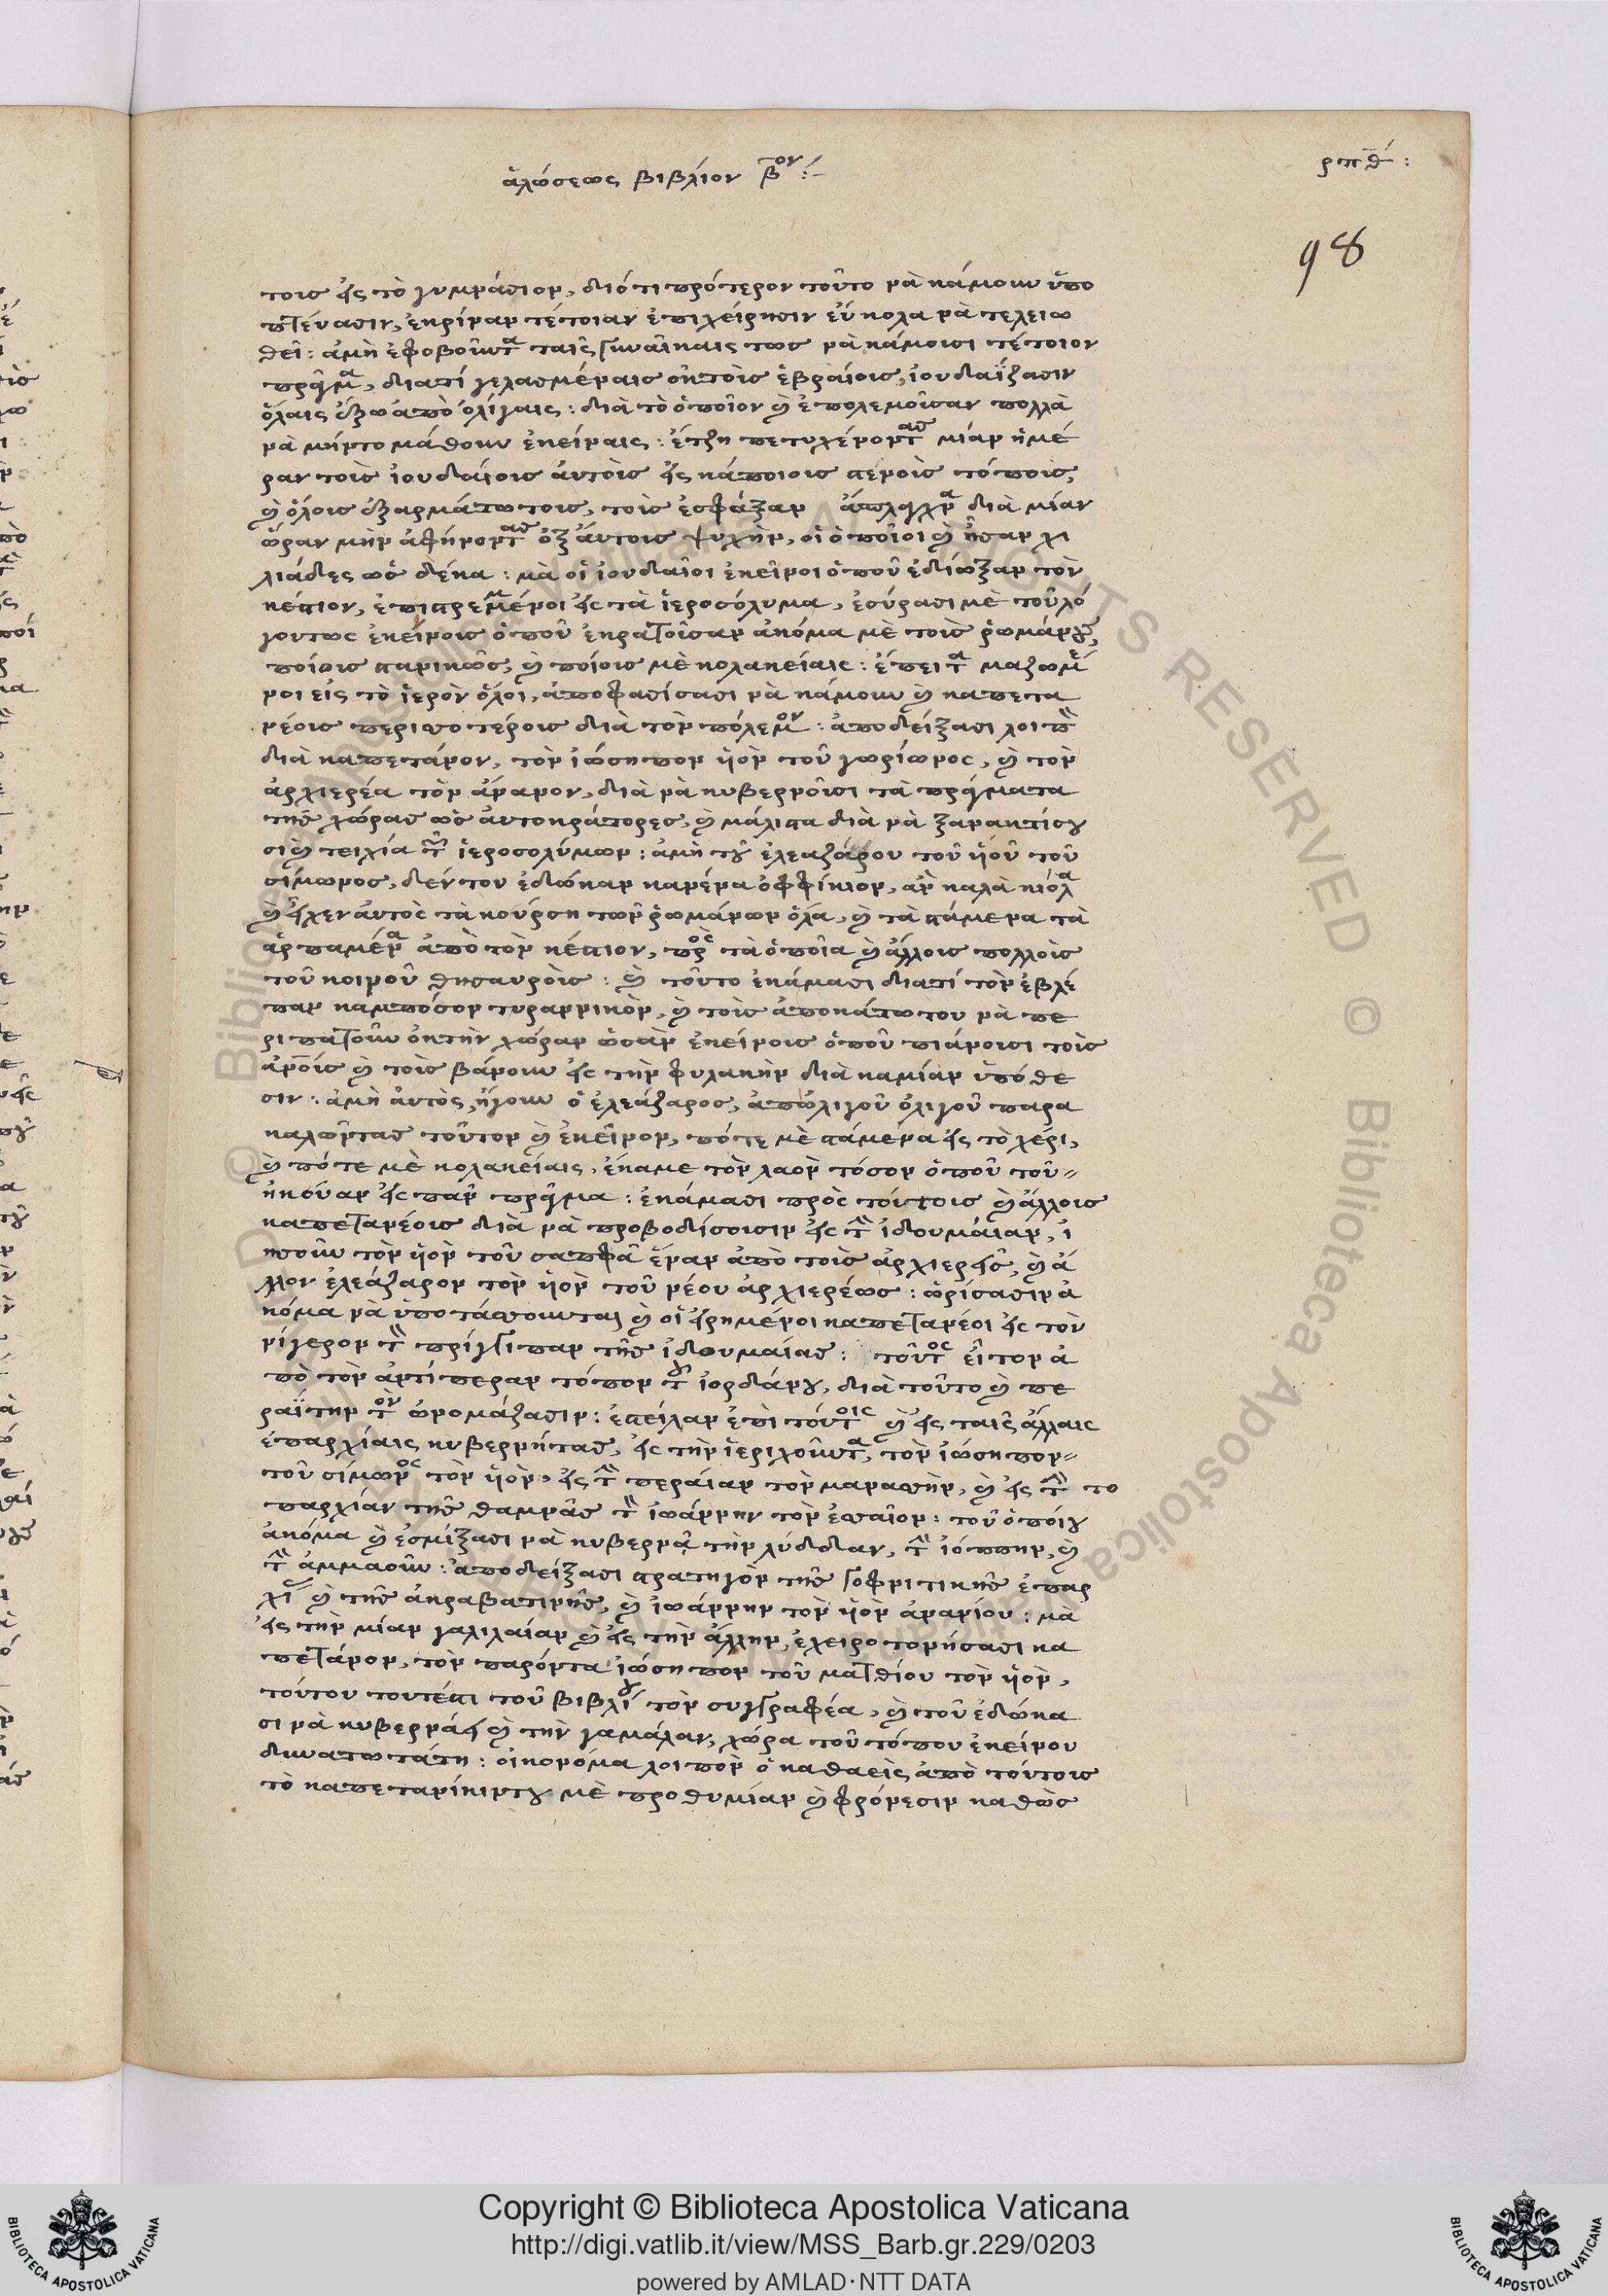 ἁλώσεως βιβλίον β̅ον:-
ρπθ́:
98
τους εἰς τὸ γυμνάσιον, διότι πρότερον τοῦτο νὰ κάμουν ὑπο
πτέυασιν, ἐκρίναν τέτοιαν ἐπιχείρησιν εὔκολα νὰ τελειω
θεῖ: ἀμὴ ἐφοβοῦντα ταῖς γυναῖκαις τως νὰ κάμουσι τέτοιον
πρᾶγμα, διατί γελασμέναις ὀκτοὺς ἑβραίους, ἰουδαΐζασιν
ὅλαις ἔξω ἀπὸ ὀλίγαις: διὰ τὸ ὁποῖον καὶ ἐπολεμοῦσαν πολλὰ
νὰ μήντο μάθουν ἐκείναις: ἔτζη πετυχένοντας μίαν ἡμέ
ραν τοὺς ἰουδαίους ἀυτοὺς εἰς κάποιους στενοὺς τόπους,
καὶ ὅλους ἐξαρμάτωτους, τοὺς ἐσφάξαν διὰ μίαν
ὥραν μὴν ἀφήνοντας ὀξἀυτους ψυχὴν, οἱ ὁποῖοι καὶ ἦσαν χι
λιάδες ὡς δέκα: μὰ οἱ ἰουδαῖοι ἐκεῖνοι ὁποῦ ἐδιώξαν τὸν
κέστιον, ἐπιστρεμμένοι εἰς τὰ ἱεροσόλυμα, ἐσύρασι μὲ τοῦ λό
γουτως ἐκείνους ὁποῦ ἐκρατοῦσαν ἀκόμα μὲ τοὺς ῥωμάνους,
ποίους στανικῶς, καὶ ποίους μὲ κολακείαις: ἔπειτα μαζωμέ
νοι εἰς τὸ ἱερὸν ὅλοι, ἀποφασίσασι νὰ κάμουν καὶ καπετα
νέους περισσοτέρους διὰ τὸν πόλεμον: ἀποδείξασι λοιπὸν
διὰ καπετάνον, τὸν ἰώσηπον ὑὸν τοῦ γωρίωνος, καὶ τὸν
ἀρχιερέα τὸν ἄνανον, διὰ νὰ κυβερνοῦσι τὰ πράγματα
τῆς χώρας ὡς ἀυτοκράτορες, καὶ μάλιστα διὰ νὰ ξανακτίσου
σι καὶ τειχία τῶν ἱεροσολύμων: ἀμὴ τοῦ ἐλεαζάρου τοῦ ὑοῦ τοῦ
σίμωνος, δέν του ἐδώκαν κανένα ὀφφίκιον, ἂν καλὰ κιόλα
καὶ εἶχεν ἀυτὸς τὰ κούρση τῶν ῥωμάνων ὅλα, καὶ τὰ στάμενα τὰ
ἁρπαμένα ἀπὸ τὸν κέστιον, πρὸς τὰ ὁποῖα καὶ ἄλλους πολλοὺς
τοῦ κοινοῦ θησαυροὺς: καὶ τοῦτο ἐκάμασι διατί τὸν ἐβλέ
παν καμπόσον τυραννικὸν, καὶ τοὺς ἀποκάτω του νὰ πε
ριπατοῦν ὀκτὴν χώραν ὡσὰν ἐκείνους ὁποῦ πιάνουσι τοὺς
ἀνοὺς καὶ τοὺς βάνουν εἰς τὴν φυλακὴν διὰ καμίαν ὑπόθε
σιν: ἀμὴ ἀυτὸς, ἤγουν ὁ ἐλεάζαρος, ἀπὀλιγοῦ ὀλιγοῦ παρα
καλῶντας τοῦτον καὶ ἐκεῖνον, πότε μὲ στάμενα εἰς τὸ χέρι,
καὶ πότε μὲ κολακείαις, ἔκαμε τὸν λαὸν τόσον ὁποῦ τοῦ-
ἠκούαν εἰς πᾶν πρᾶγμα: ἐκάμασι πρὸς τούτους καὶ ἄλλους
καπετανέους διὰ νὰ προβοδίσουσιν εἰς τὴν ἰδουμαίαν, ἰ
ησοῦν τὸν ὑὸν τοῦ σαπφᾶ ἕναν ἀπὸ τοὺς ἀρχιερεῖς, καὶ ἄ
λλον ἐλεάζαρον τὸν ὑὸν τοῦ νέου ἀρχιερέως: ὡρίσασιν ἀ
κόμα νὰ ὑποτάσσουνται καὶ οἱ εἰρημένοι καπετανέοι εἰς τὸν
νίγερον τὸν πρίγκιπαν τῆς ἰδουμαίας: τοῦτος εἶτον ἀ
πὸ τὸν ἀντίπεραν τόπον τοῦ ἰορδάνου, διὰ τοῦτο καὶ πε
ραΐτην τὸν ὠνομάζασιν: ἐστείλαν ἐπὶ τούτοις καὶ εἰς ταῖς ἄλλαις
ἐπαρχίαις κυβερνήτας, εἰς τὴν ἱεριχοῦντα, τὸν ἰώσηπον-
τοῦ σίμωνος τὸν ὑὸν, εἰς τὴν περαίαν τὸν μανασσὴν, καὶ εἰς τὴν το
παρχίαν τῆς θαμνᾶς τὸν ἰωάννην τὸν ἐσσαῖον: τοῦ ὁποίου
ἀκόμα καὶ ἐσμίξασι νὰ κυβερνᾷ τὴν λύδδαν, τὴν ἰόππην, καὶ
τὴν ἀμμαοῦν: ἀποδείξασι στρατηγὸν τῆς γοφνιτικῆς ἐπαρ
χίας καὶ τῆς ἀκραβατινῆς, καὶ ἰωάννην τὸν ὑὸν ἀνανίου: μὰ
εἰς τὴν μίαν γαλιλαίαν καὶ εἰς τὴν ἄλλην, ἐχειροτονήσασι κα
πετάνον, τὸν παρόντα ἰώσηπον τοῦ ματθίου τὸν ὑὸν,
τούτου τουτέστι τοῦ βιβλίου τὸν συγγραφέα, καὶ τοῦ ἐδώκα
σι νὰ κυβερνάει καὶ τὴν γαμάλαν, χώρα τοῦ τόπου ἐκείνου
δυνατωτάτη: οἰκονόμα λοιπὸν ὁ καθαεὶς ἀπὸ τούτους
τὸ καπετανίκιντου μὲ προθυμίαν καὶ φρόνεσιν καθὼς
Copyright © Biblioteca Apostolica Vaticana
http://digi.vatlib.it/view/MSS_Barb.gr.229/0203
powered by AMLAD·NTT DATA